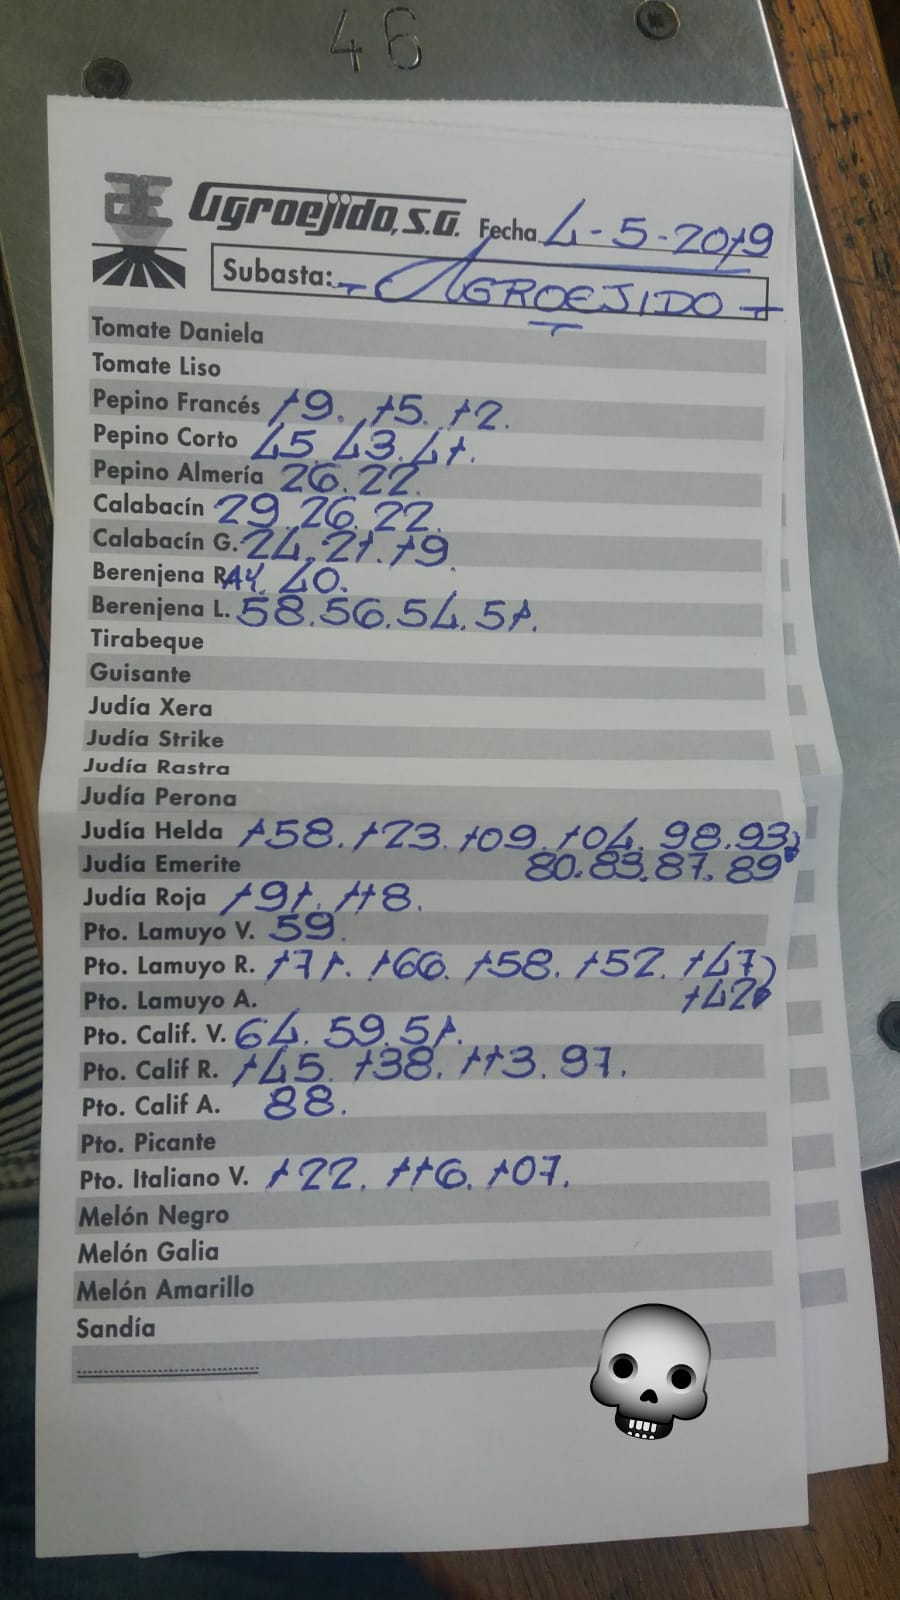 46
Agroejido, S.A. Fecha 4-5-2019
Subasta: - AGROEJIDO -
Tomate Daniela
Tomate Liso
Pepino Francés 19. 15. 12.
Pepino Corto 45. 43. 41.
Pepino Almería 26. 22.
Calabacín 29. 26. 22.
Calabacín G. 24. 21. 19.
Berenjena RAY. 40.
Berenjena L. 58. 56. 54. 51.
Tirabeque
Guisante
Judía Xera
Judía Strike
Judía Rastra
Judía Perona
Judía Helda 158. 123. 109. 104. 98. 93,
Judía Emerite 80. 83. 87. 89
Judía Roja 191. 118.
Pto. Lamuyo V. 59.
Pto. Lamuyo R. 171. 166. 158. 152. 147
Pto. Lamuyo A. 142
Pto. Calif. V. 64. 59. 51.
Pto. Calif R. 145. 138. 113. 97.
Pto. Calif A. 88.
Pto. Picante
Pto. Italiano V. 122. 116. 107.
Melón Negro
Melón Galia
Melón Amarillo
Sandía